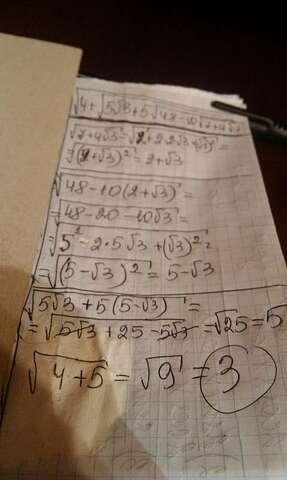 √4+√5√3+5√48-10√7+4√3
√7+4√3 = √2²+2·2√3+(√3)² =
=√(2+√3)² = 2+√3
√48-10(2+√3) =
=√48-20-10√3 =
=√5²-2·5√3+(√3)² =
=√(5-√3)² = 5-√3
√5√3+5(5-√3) =
=√5√3+25-5√3 = √25 = 5
√4+5 = √9 = 3